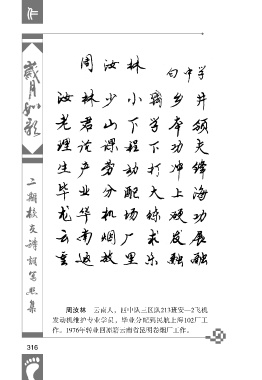 周汝林
自中学
汝林少小离乡井
老君山下学本领
理论课程下功夫
生产劳动打冲锋
毕业分配大上海
龙华机场练硬功
云南烟厂求发展
重返故里乐融融
岁月如歌
二期校友诗词笔照集
周汝林 云南人，四中队三区队213班安—2飞机
发动机维护专业学员，毕业分配到民航上海102厂工
作。1976年转业回原籍云南省昆明卷烟厂工作。
316